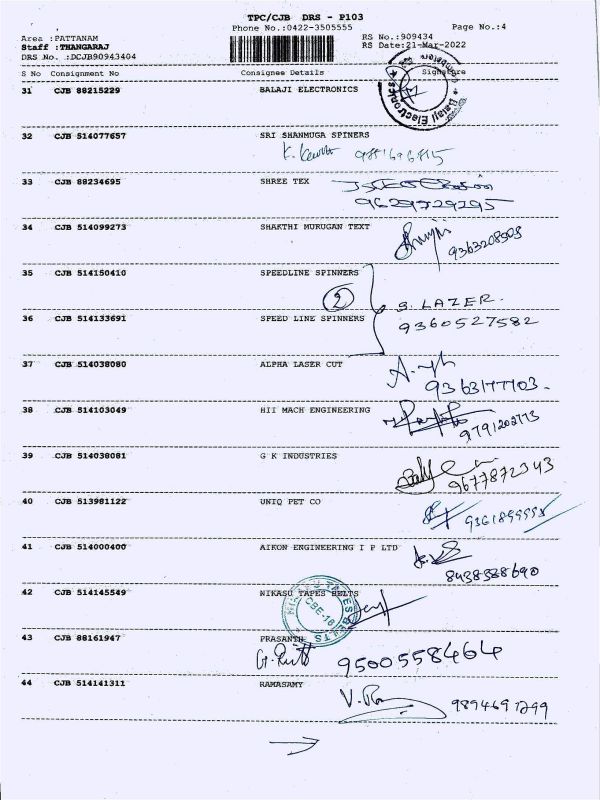 TPC/CJB DRS - P103
Phone No.:0422-3505555 Page No.:4
Area :PATTANAM RS No.:909434
Staff :THANGARAJ RS Date:21-Mar-2022
DRS No. :DCJB90943404
S No Consignment No Consignee Details Signature
31 CJB 88215229 BALAJI ELECTRONICS
Balaji Electronics
32 CJB 514077657 SRI SHANMUGA SPINERS
33 CJB 88234695 SHREE TEX
9629729295
34 CJB 514099273 SHAKTHI MURUGAN TEXT
9363208503
35 CJB 514150410 SPEEDLINE SPINNERS
2 S. LAZER.
36 CJB 514133691 SPEED LINE SPINNERS
9360527582
37 CJB 514038080 ALPHA LASER CUT
9363177703.
38 CJB 514103049 HII MACH ENGINEERING
9791202773
39 CJB 514038081 G K INDUSTRIES
9677872343
40 CJB 513981122 UNIQ PET CO
41 CJB 514000400 AIKON ENGINEERING I P LTD
8438388690
42 CJB 514145549 NIKASU TAPES BELTS
CBE-18
43 CJB 88161947 PRASANTH
9500558464
44 CJB 514141311 RAMASAMY
V. Ra 9894691299